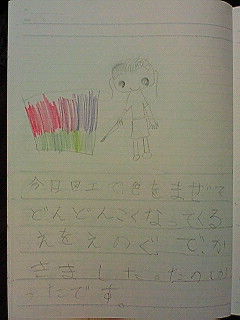 今日図工で色をまぜて
どんどんこくなってくる
えをえのぐで、か
きました。たのしか
ったです。